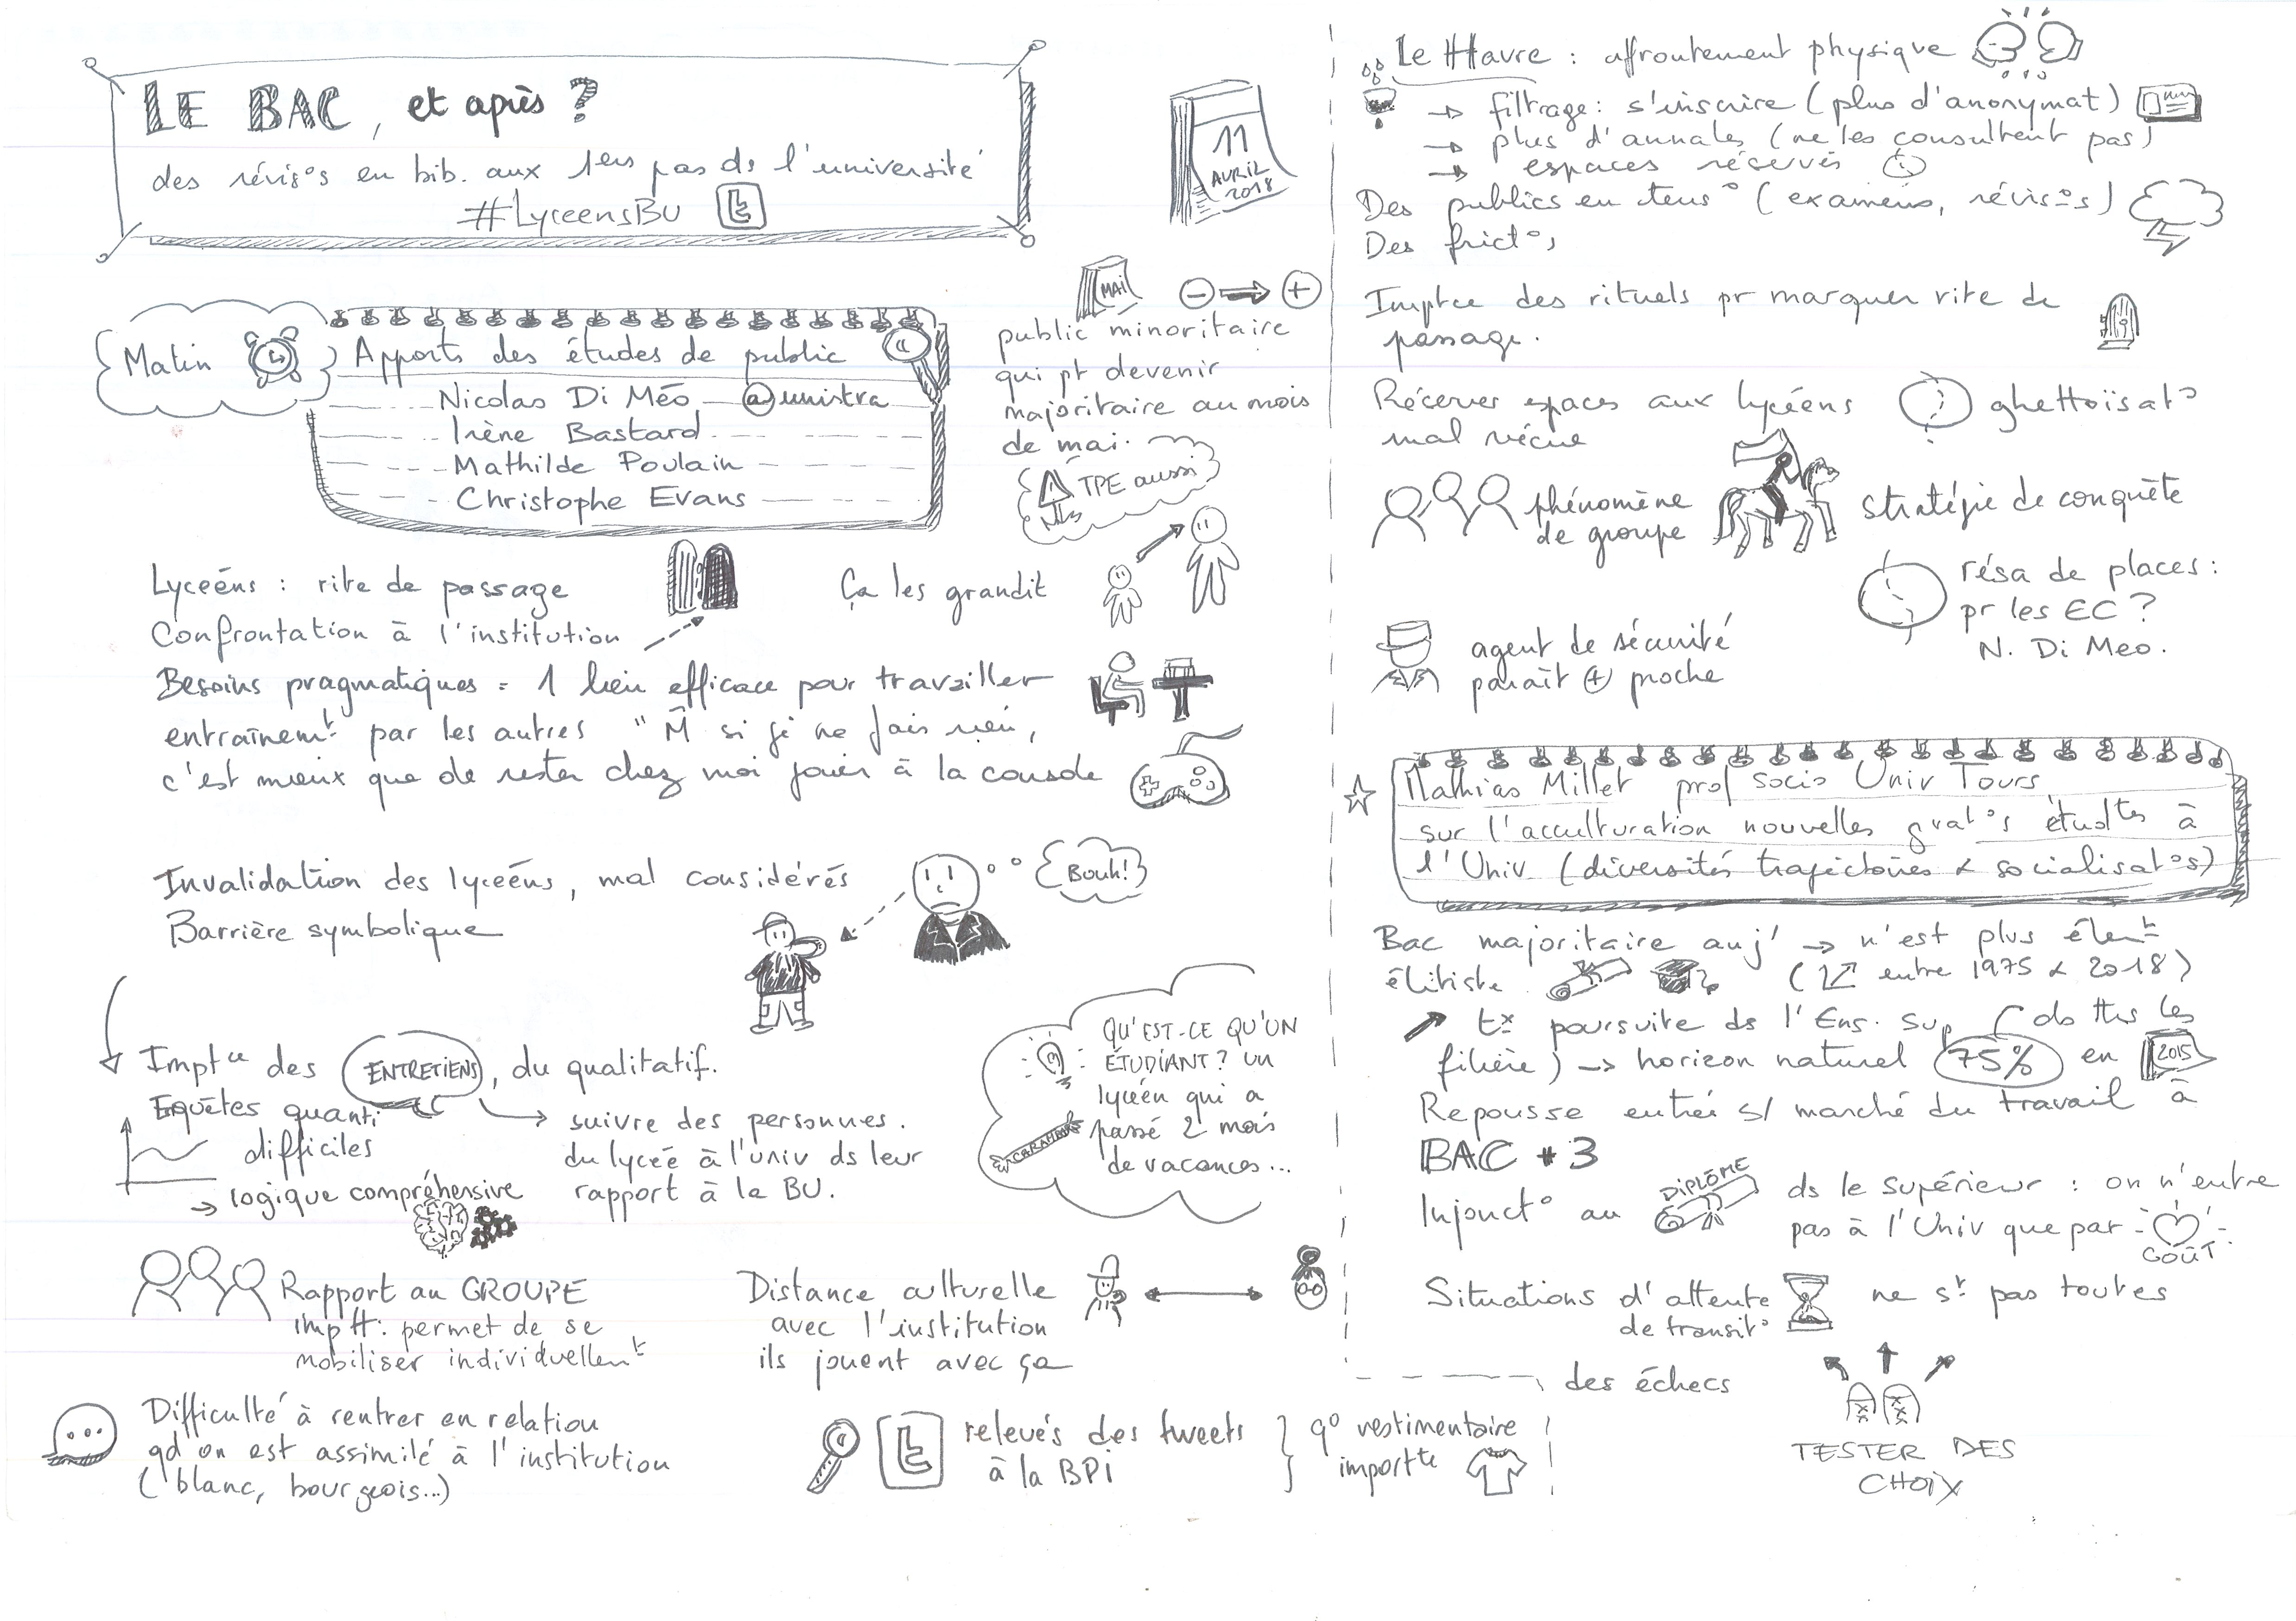 LE BAC, et après ?
des révis°s en bib. aux 1ers pas ds l'université
#LyceensBU
11
AVRIL
2018
Matin
Apports des études de public
Nicolas Di Méo @unistra
Irène Bastard
Mathilde Poulain
Christophe Evans
MAI
- → +
public minoritaire
qui pt devenir
majoritaire au mois
de mai.
TPE aussi
Lycéens : rite de passage
Confrontation à l'institution
Ça les grandit
Besoins pragmatiques = 1 lieu efficace pour travailler
entraînemt par les autres "M̂ si je ne fais rien,
c'est mieux que de rester chez moi jouer à la console
Invalidation des lycéens, mal considérés
Barrière symbolique
Bouh!
Imptce des ENTRETIENS, du qualitatif.
Enquêtes quanti
difficiles
→ logique compréhensive
suivre des personnes.
du lycée à l'univ ds leur
rapport à la BU.
QU'EST-CE QU'UN
ÉTUDIANT ? UN
lycéen qui a
passé 2 mois
de vacances...
CARAMBAR
Rapport au GROUPE
imptt : permet de se
mobiliser individuellemt
Distance culturelle
avec l'institution
ils jouent avec ça
Difficulté à rentrer en relation
qd on est assimilé à l'institution
(blanc, bourgeois...)
relevés des tweets
à la BPI
q° vestimentaire
importte
Le Havre : affrontement physique
→ filtrage : s'inscrire (plus d'anonymat)
→ plus d'annales (ne les consultent pas)
→ espaces réservés
Des publics en tens° (examens, révis°s)
Des frict°s
Imptce des rituels pr marquer rite de
passage.
Réserver espaces aux lycéens
mal vécue
ghettoïsat°
phénomène
de groupe
stratégie de conquête
résa de places :
pr les EC ?
N. Di Meo.
agent de sécurité
paraît + proche
Mathias Millet prof socio Univ Tours
sur l'acculturation nouvelles g°rat°s étudtes à
l'Univ (diversités trajectoires & socialisat°s)
Bac majoritaire auj' → n'est plus élemt
élitiste (↗ entre 1975 & 2018)
↗ tx poursuite ds l'Ens. Sup (ds ttes les
filière) → horizon naturel 75% en 2015
Repousse entrée s/ marché du travail à
BAC +3
Injonct° au DIPLÔME ds le Supérieur : on n'entre
pas à l'Univ que par GOÛT
Situations d'attente
de transit° ne st pas toutes
des échecs
TESTER DES
CHOIX